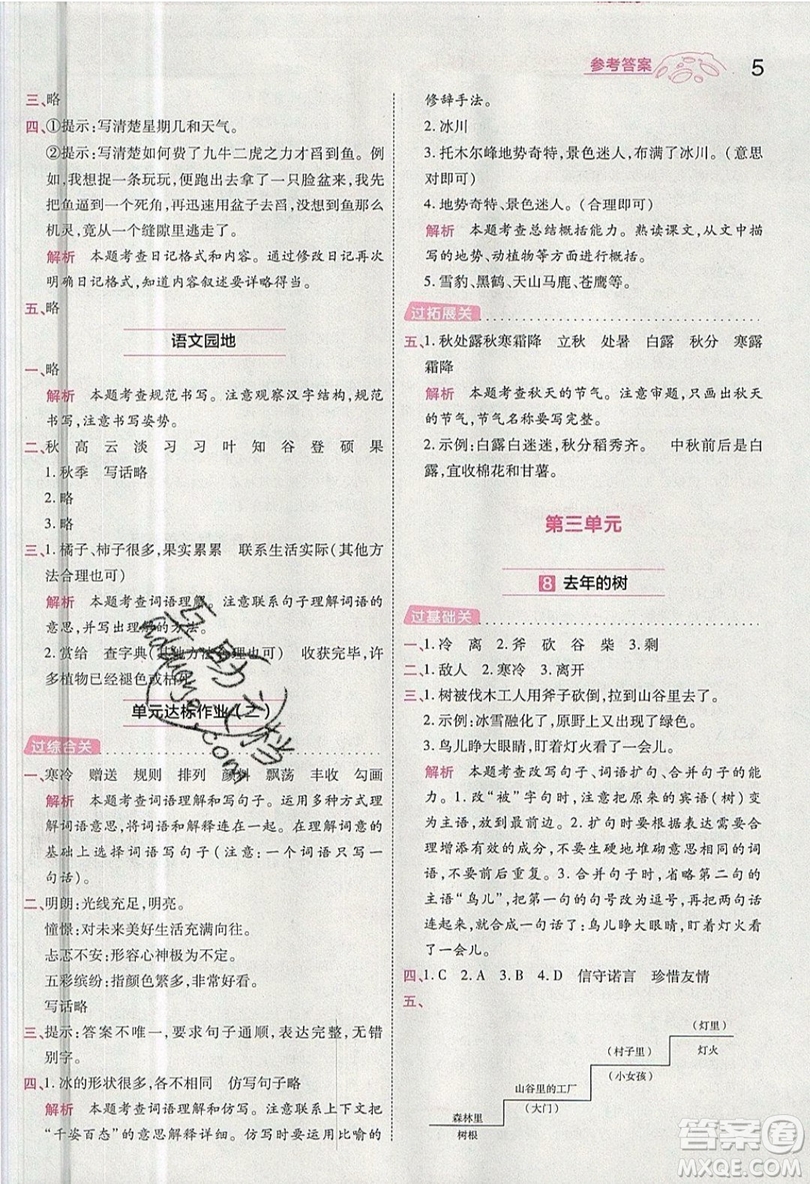 参考答案
5
三、略
四、①提示:写清楚星期几和天气。
②提示:写清楚如何费了九牛二虎之力才舀到鱼。例
如,想捉一条玩玩,便跑去拿了一只脸盆来,我尽力
把鱼逼到一个死角,再迅速用盆子舀,没想到鱼儿那么
机灵,向一个缝隙里逃走了。
解析 本题考查日记格式和内容。通过修改日记再
次明确日记格式,内容叙述要详略得当。
五、略
语文园地
一、略
解析 本题考查规范书写。注意观察汉字结构,规范
书写,注意书写姿势。
二、秋 高 云 淡 习 习 叶 知 谷 登 硕 果
1.秋季 写话略
2.略
3.略
三、1.橘子、柿子很多,果实累累 联系生活实际(其他方
法合理也可)
解析 本题考查词语理解。注意联系句子理解词语的
意思,并写出理解的方法。
2.赏给 查字典(其他方法合理也可) 收获完毕,许
多植物已经褪色或枯
单元达标作业(二)
过综合关
一、寒冷 赠送 规则 排列 颜料 飘荡 丰收 勾画
解析 本题考查词语理解和写句子。运用多种方式理
解词语意思,将词语和解释连在一起。在理解词意的
基础上选择词语写句子(注意:一个词语只写一
句话)。
二、明朗:光线充足,明亮。
憧憬:对未来美好生活充满向往。
忐忑不安:形容心神极为不安。
五彩缤纷:指颜色繁多,非常好看。
写话略
三、提示:答案不唯一,要求句子通顺,表达完整,无错
别字。
四、1.冰的形状很多,各不相同 仿写句子略
解析 本题考查词语理解和仿写。注意联系上下文把
“千姿百态”的意思解释详细。仿写时要运用比喻的
修辞手法。
2.冰川
3.托木尔峰地势奇特,景色迷人,布满了冰川。(意思
对即可)
4.地势奇特、景色迷人。(合理即可)
解析 本题考查总结概括能力。熟读课文,从文中描
写的地势、动植物等方面进行概括。
5.雪豹、黑鹤、天山马鹿、苍鹰等。
过拓展关
五、1.秋处露秋寒霜降 立秋 处暑 白露 秋分 寒露
霜降
解析 本题考查秋天的节气。注意审题,只写出秋天
的节气,节气名称要写准确。
2.示例:白露白迷迷,秋分稻秀齐。 中秋前后是白
露,宜收棉花和甘薯。
第三单元
8 去年的树
过基础关
一、1.冷 离 2.斧 砍 谷 柴 3.剩
二、1.敌人 2.寒冷 3.离开
三、1.树被伐木工人用斧子砍倒,拉到山谷里了。
2.示例:冰雪融化了,原野上又出现了绿色。
3.鸟儿睁大眼睛,盯着灯火看了一会儿。
解析 本题考查改写句子、词语扩句、合并句子的能
力。1.改“被”字句时,注意把原来的宾语(树)变
为主语,放到句首。2.扩句时根据表达需要合
理增添有效的成分,不要生硬地堆砌词语,更不要
增添原来没有的意思。3.合并句子时,省略第二句的
主语“鸟儿”,把第一句的句号改为逗号,再把两句话
合理地组合成一句话:鸟儿睁大眼睛,盯着灯火看了
一会儿。
四、1.C 2.A 3.B 4.D 信守诺言 珍惜友情
五、
(灯里)
灯火
(村子里)
(小女孩)
山谷里的工厂
(大门)
森林里
树根
答案圈
MXQE.COM